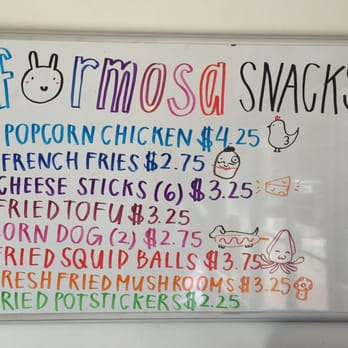 formosa SNACKS
POPCORN CHICKEN $4.25
FRENCH FRIES $2.75
CHEESE STICKS (6) $3.25
FRIED TOFU $3.25
CORN DOG (2) $2.75
FRIED SQUID BALLS $3.75
FRESH FRIED MUSHROOMS $3.25
FRIED POTSTICKERS $2.25